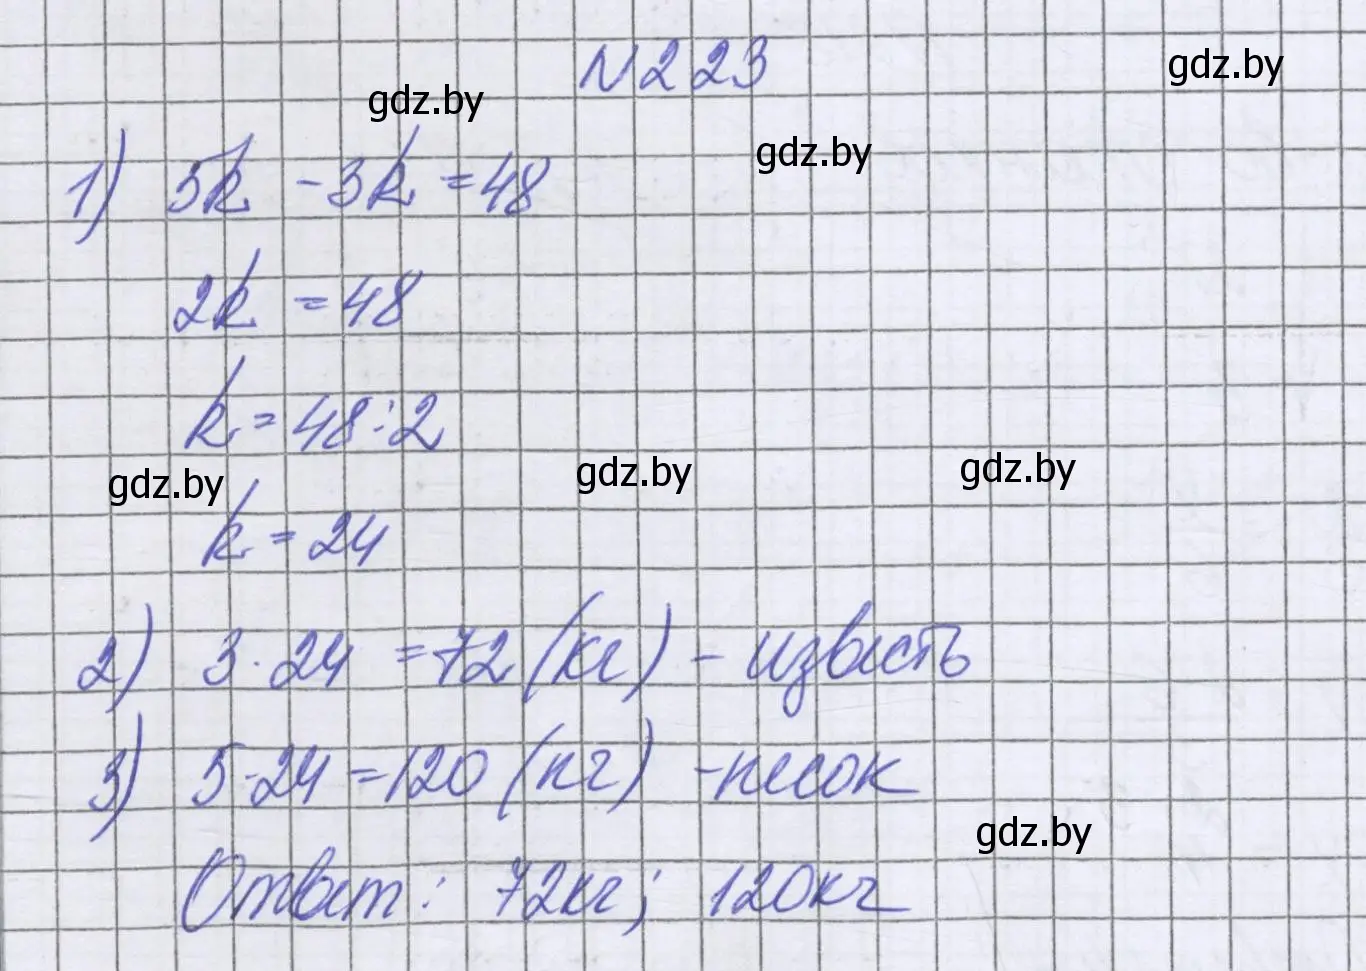 N 223
gdz.by
gdz.by
gdz.by
1) 5k - 3k = 48
2k = 48
k = 48 : 2
gdz.by
gdz.by
gdz.by
k = 24
2) 3 · 24 = 72 (кг) - известь
3) 5 · 24 = 120 (кг) - песок
gdz.by
Ответ: 72кг; 120кг